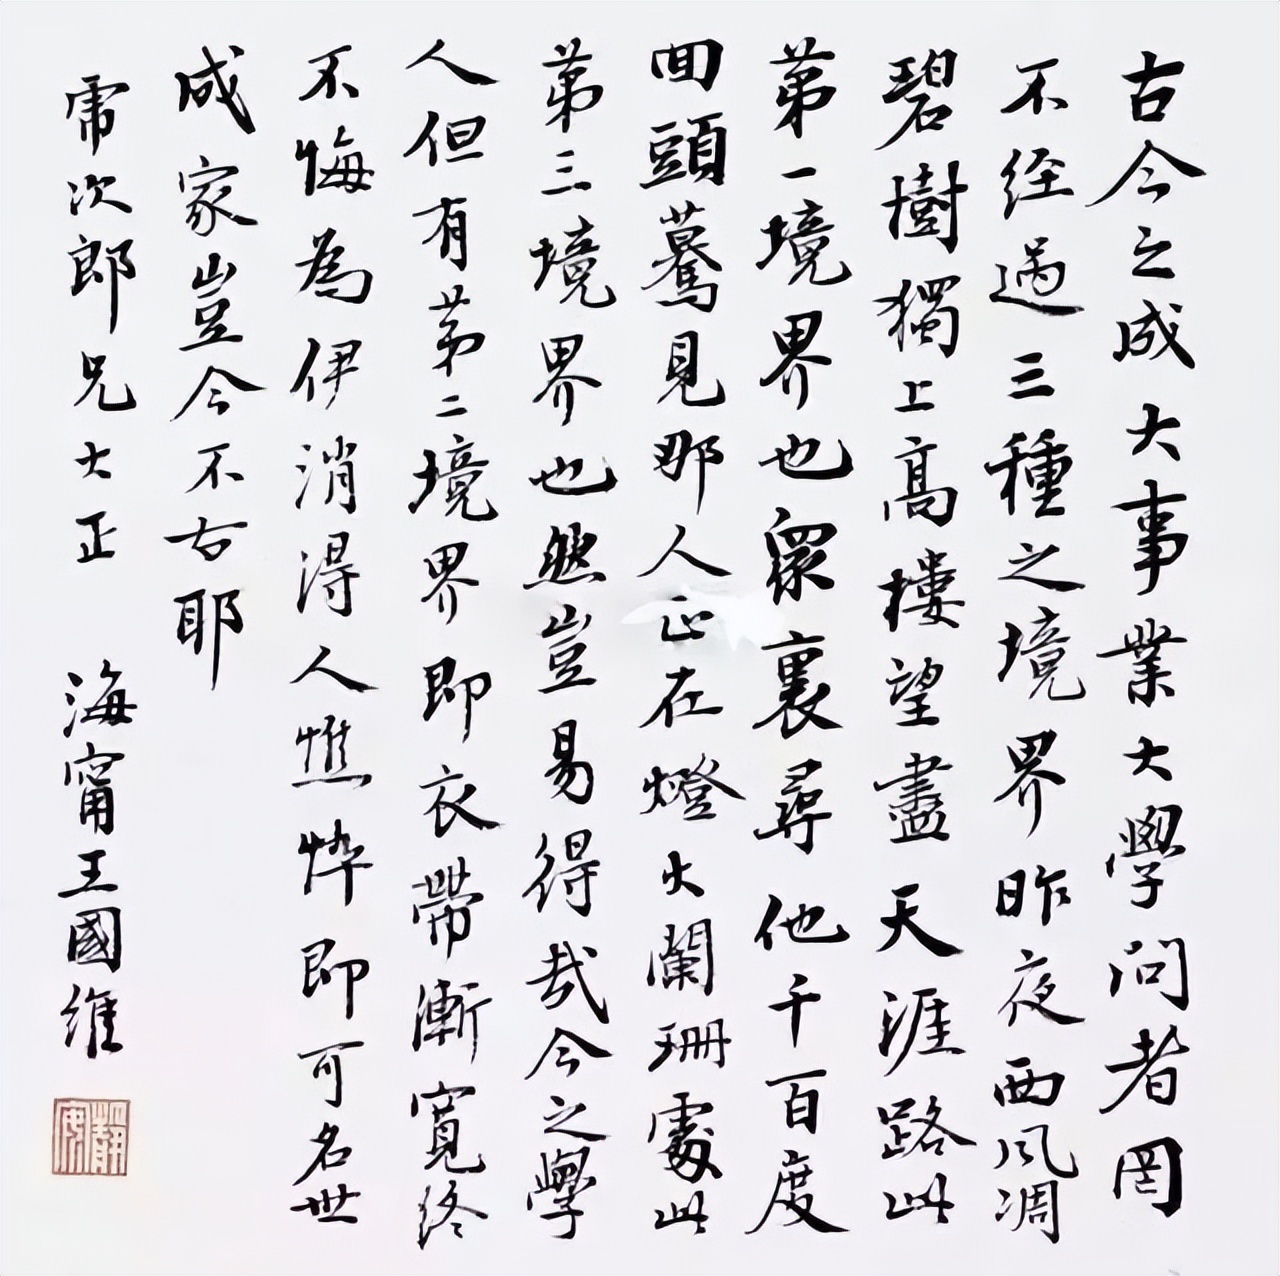 古今之成大事業大學問者罔
不经過三種之境界昨夜西风凋
碧樹獨上高樓望盡天涯路此
第一境界也眾裏尋他千百度
回頭驀見那人正在燈火闌珊處此
第三境界也然豈易得哉今之學
人但有第二境界即衣帶漸寬终
不悔為伊消得人憔悴即可名世
成家豈今不古耶
雷次郎兄大正 海甯王國維